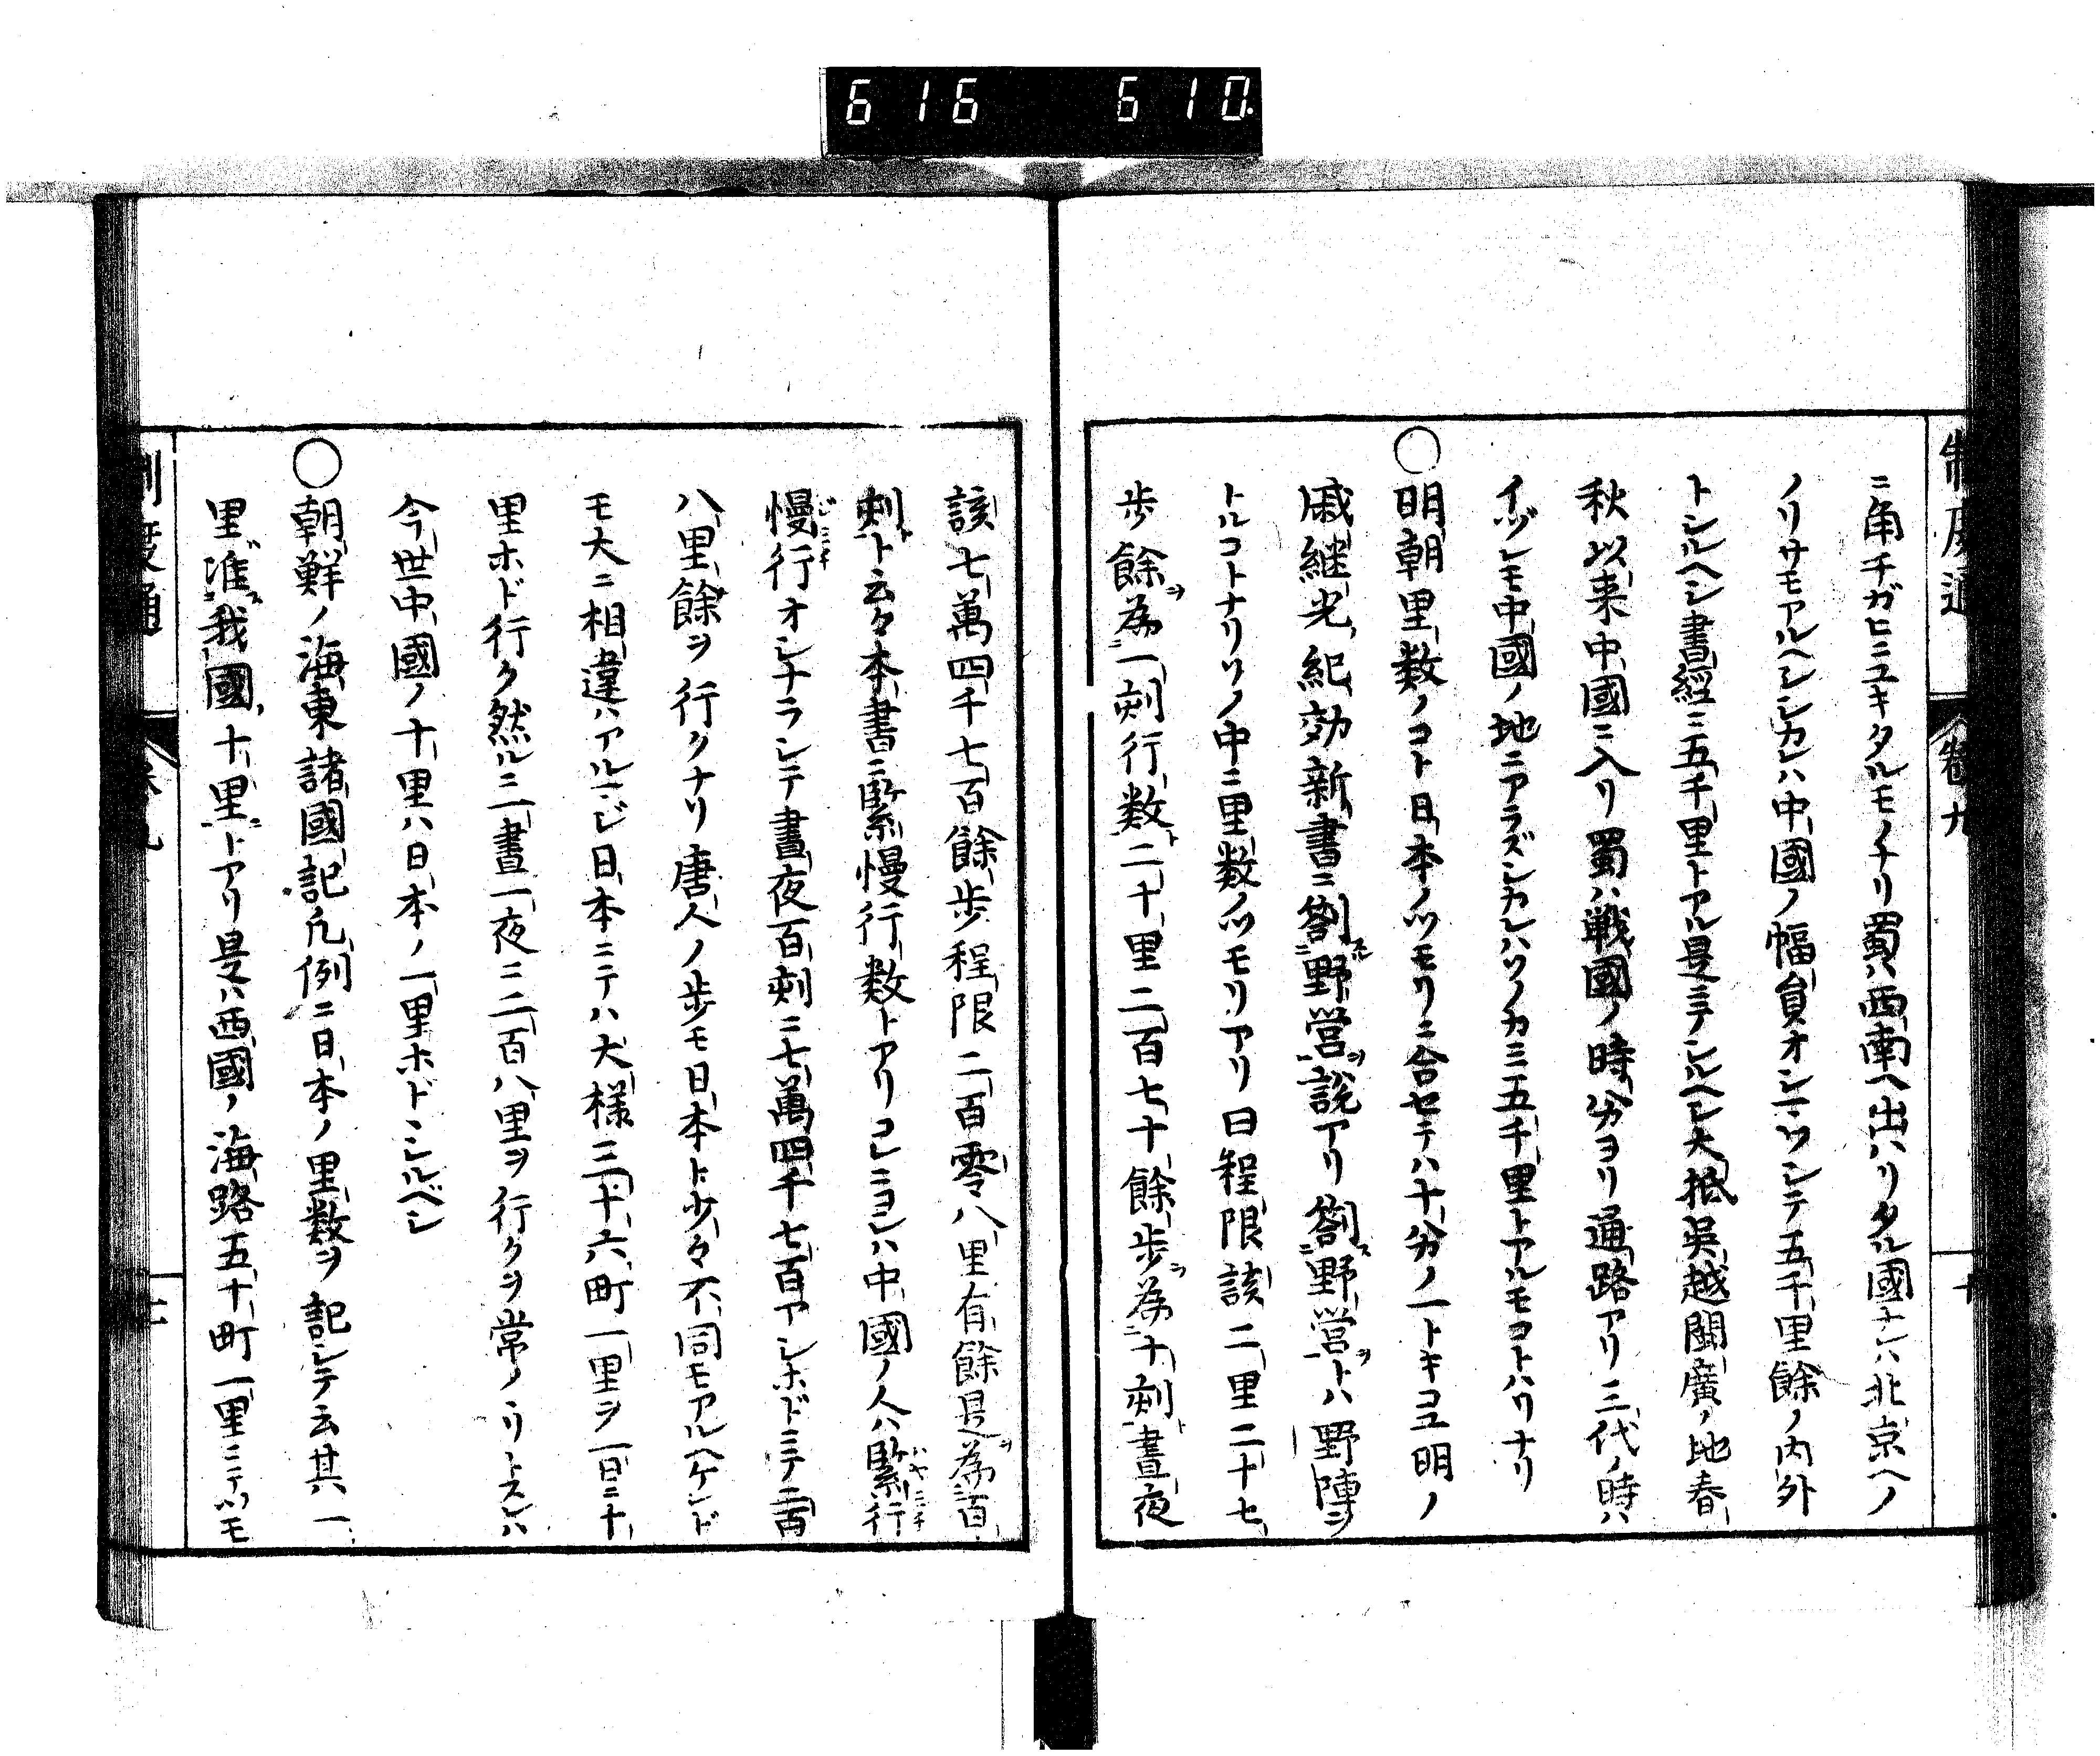 616 610.
制度通
巻九
十
ニ角チガヒニユキタルモノナリ蜀ハ西南ヘ出ハリタル國ナレハ北京ヘノ
ノリサモアルヘシシカレハ中國ノ幅員オシナヘシテ五千里餘ノ内外
トシルヘシ書經ニ五千里トアル是ニテシルヘシ大抵吳越閩廣ノ地春
秋以来中國ニ入リ蜀ハ戦國ノ時分ヨリ通路アリ三代ノ時ハ
イヅレモ中國ノ地ニアラズシカレハソノカミ五千里トアルモコトハリナリ
○明朝里数ノコト日本ノツモリニ合セテハ十分ノ一トキコユ明ノ
戚継光紀効新書ニ劄野営説アリ劄野営トハ野陣ヲ
トルコトナリソノ中ニ里数ノツモリアリ曰程限該二里二十七
歩餘為一刻行数二十里二百七十餘歩為十刻晝夜
該七萬四千七百餘歩程限二百零八里有餘是為百
刻ト云々本書ニ緊慢行数トアリコレニヨレハ中國ノ人ハ緊行
慢行オシナラシテ晝夜百刻ニ七萬四千七百アシホドニテ二百
八里餘ヲ行クナリ唐人ノ歩モ日本ト少々不同モアルヘケレド
モ大ニ相違ハアルマジ日本ニテハ大様三十六町一里ヲ一日ニ十
里ホド行ク然ルニ一晝一夜ニ二百八里ヲ行クヲ常ノコトスレハ
今世中國ノ十里ハ日本ノ一里ホドトシルベシ
○朝鮮ノ海東諸國記凡例ニ日本ノ里数ヲ記シテ云其一
里准我國十里トアリ是ハ西國ノ海路五十町一里ニテツモ
制度通
巻九
十一